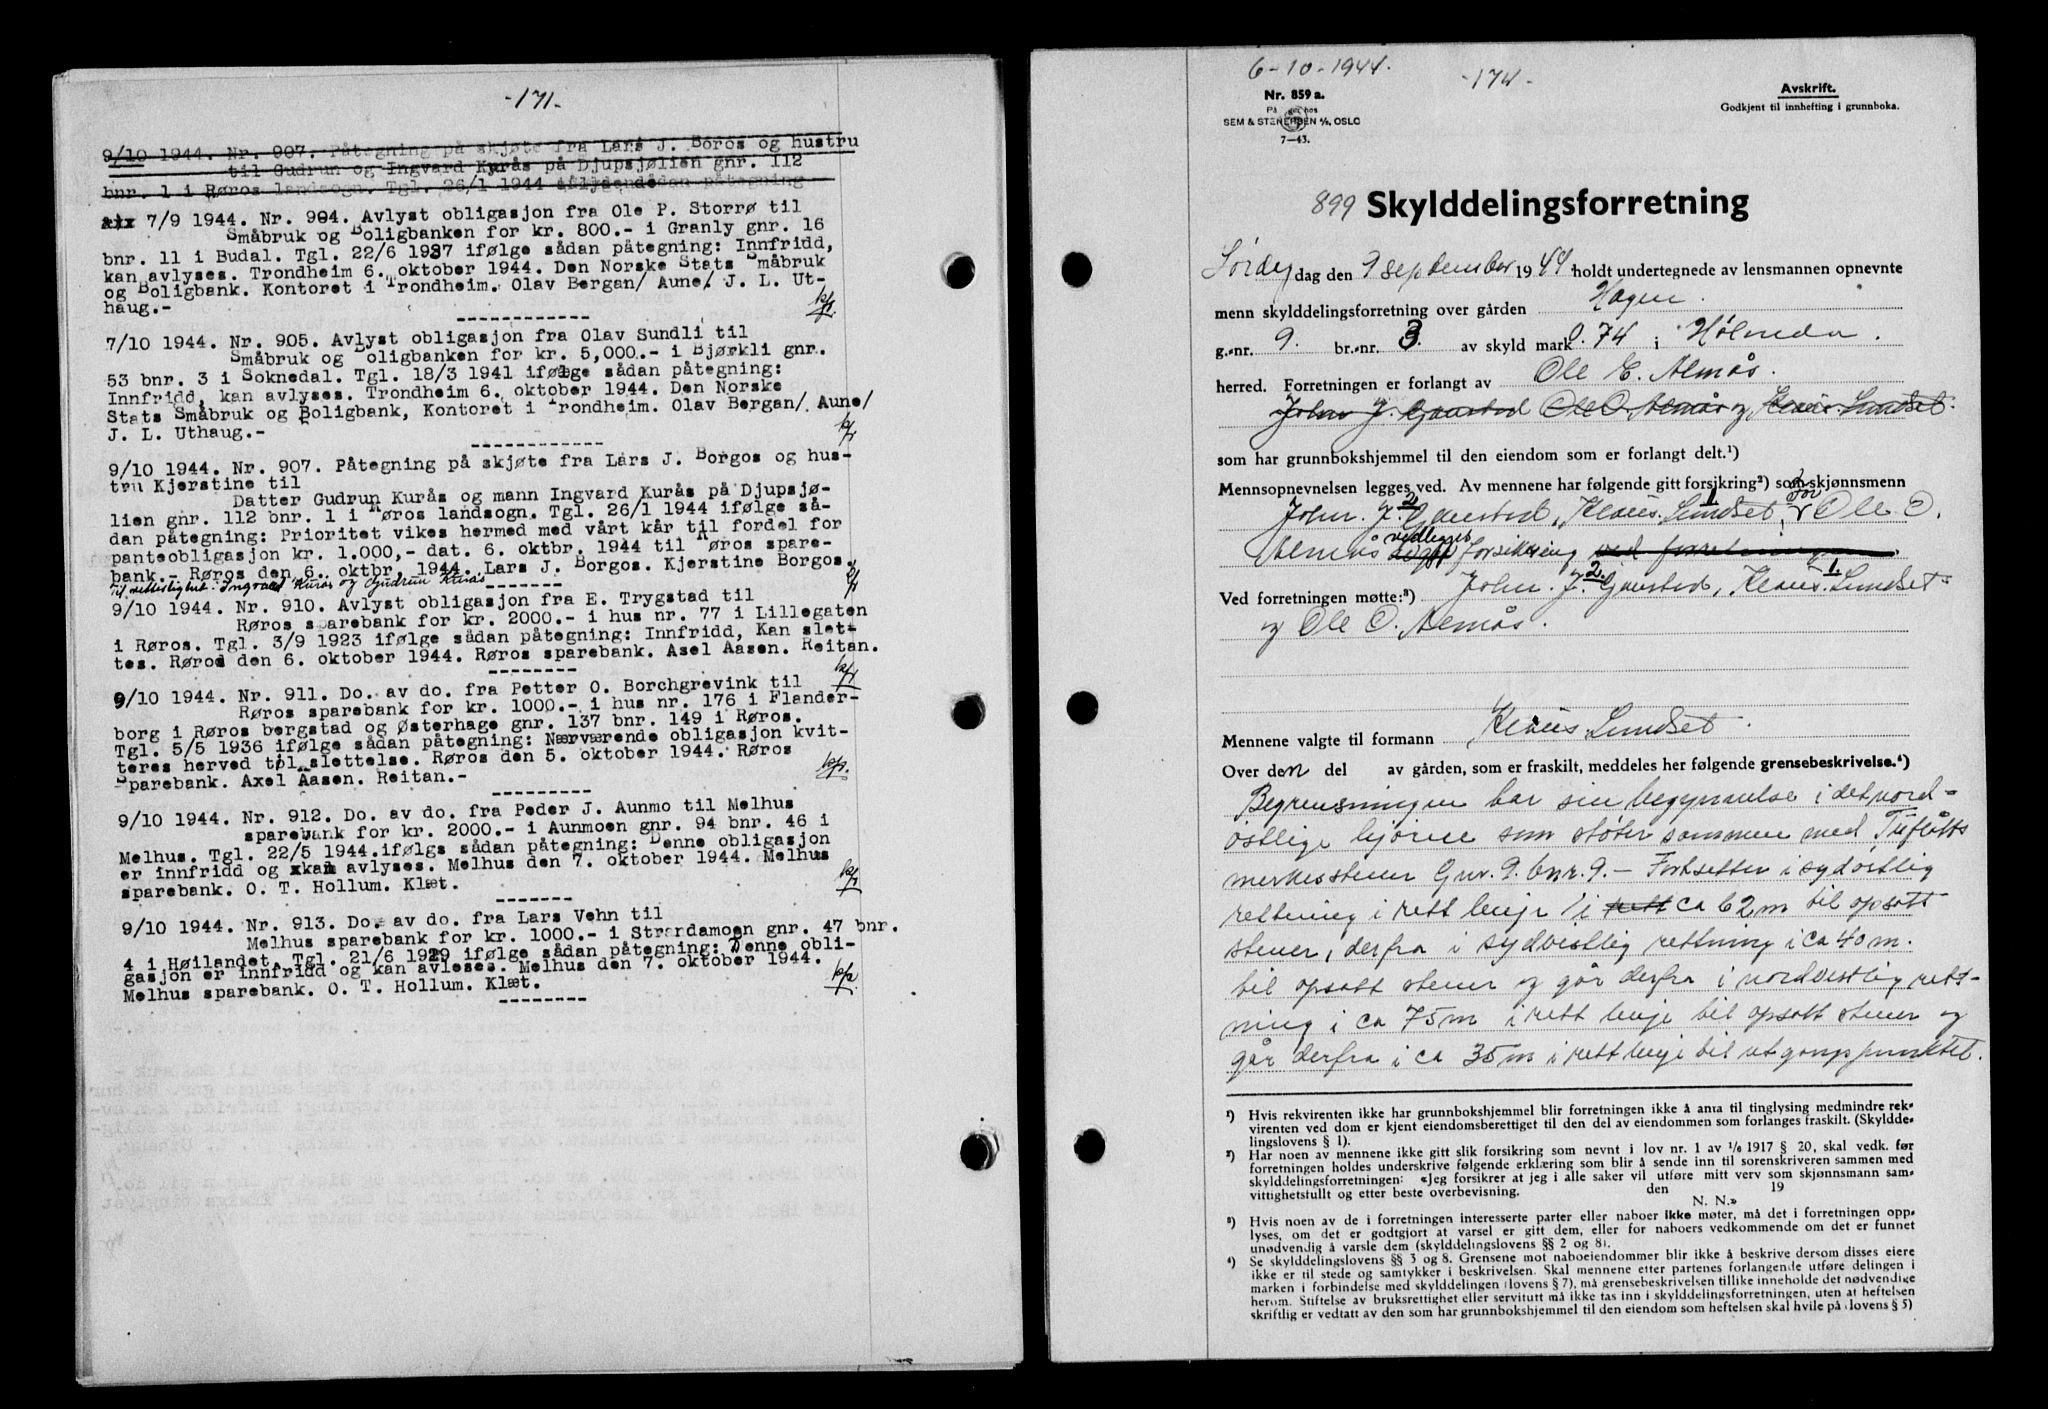 -171-
9/10 1944. Nr. 907. Påtegning på skjøte fra Lars J. Boros og hustru
til Gudrun og Ingvard Kurås på Djupsjølien gnr. 112
bnr. 1 i Røros landsogn. Tgl. 26/1 1944 påtegning
7/9 1944. Nr. 904. Avlyst obligasjon fra Ole P. Storrø til
Småbruk og Boligbanken for kr. 800.- i Granly gnr. 16
bnr. 11 i Budal. Tgl. 22/6 1937 ifølge sådan påtegning: Innfridd,
kan avlyses. Trondheim 6. oktober 1944. Den Norske Stats Småbruk
og Boligbank. Kontoret i Trondheim. Olav Bergan/ Aune/ J. L. Ut-
haug.-
7/10 1944. Nr. 905. Avlyst obligasjon fra Olav Sundli til
Småbruk og Boligbanken for kr. 5,000.- i Bjørkli gnr.
53 bnr. 3 i Soknedal. Tgl. 18/3 1941 ifølge sådan påtegning:
Innfridd, kan avlyses. Trondheim 6. oktober 1944. Den Norske
Stats Småbruk og Boligbank, Kontoret i Trondheim. Olav Bergan/ Aune/
J. L. Uthaug.-
9/10 1944. Nr. 907. Påtegning på skjøte fra Lars J. Borgos og hus-
tru Kjerstine til
Datter Gudrun Kurås og mann Ingvard Kurås på Djupsjø-
lien gnr. 112 bnr. 1 i Røros landsogn. Tgl. 26/1 1944 ifølge så-
dan påtegning: Prioritet vikes hermed med vårt kår til fordel for
panteobligasjon kr. 1.000,- dat. 6. oktbr. 1944 til Røros spare-
bank.- Røros den 6. oktbr. 1944. Lars J. Borgos. Kjerstine Borgos.
Til rettighet: Ingvald Kurås og Gudrun Kurås
9/10 1944. Nr. 910. Avlyst obligasjon fra E. Trygstad til
Røros sparebank for kr. 2000.- i hus nr. 77 i Lillegaten
i Røros. Tgl. 3/9 1923 ifølge sådan påtegning: Innfridd, Kan slet-
tes. Røros den 6. oktober 1944. Røros sparebank. Asel Aasen. Reitan.
9/10 1944. Nr. 911. Do. av do. fra Petter O. Borchgrevink til
Røros sparebank for kr. 1000.- i hus nr. 176 i Flander-
borg i Røros bergstad og Østerhage gnr. 137 bnr. 149 i Røros.
Tgl. 5/5 1936 ifølge sådan påtegning: Nærværende obligasjon kvit-
teres herved til slettelse. Røros den 5. oktober 1944. Røros
Sparebank. Axel Aasen. Reitan.-
9/10 1944. Nr. 912. Do. av do. fra Peder J. Aunmo til Melhus
sparebank for kr. 2000.- i Aunmoen gnr. 94 bnr. 46 i
Melhus. Tgl. 22/5 1944.ifølgs sådan påtegning: Denne obligasjon
er innfridd og kan avlyses. Melhus den 7. oktober 1944. Melhus
sparebank. O. T. Hollum. Klæt.
9/10 1944. Nr. 913. Do. av do. fra Lars Vehn til
Melhus sparebank for kr. 1000.- i Strandamoen gnr. 47 bnr.
4 i Høilandet. Tgl. 21/6 1929 ifølge sådan påtegning: Denne obli-
gasjon er innfridd og kan avleses. Melhus den 7. oktober 1944.
Melhus sparebank. O. T. Hollum. Klæt.
6-10-1944.
-174-
Nr. 859 a.
SEM & STENERSEN A/S, OSLO
7-43.
Avskrift.
Godkjent til innhefting i grunnboka.
899 Skylddelingsforretning
Lørdag den 9 september 1944 holdt undertegnede av lensmannen opnevnte
menn skylddelingsforretning over gården Hagen.
g.-nr. 9. br.-nr. 3. av skyld mark 0.74 i Hølonda.
herred. Forretningen er forlangt av Ole E. Almås.
John J. Gaustad Ole O. Almås og Klaus Lundset.
som har grunnbokshjemmel til den eiendom som er forlangt delt.¹)
Mennsopnevnelsen legges ved. Av mennene har følgende gitt forsikring²) som skjønnsmenn
John. J. Gaustad, Klaus Lundset, for Ole O.
Almås vedlegges forsikring ved forretningen.
Ved forretningen møtte:³) John. J. Gaustad, Klaus. Lundset
og Ole O. Almås.
Mennene valgte til formann Klaus Lundset.
Over den del av gården, som er fraskilt, meddeles her følgende grensebeskrivelse.⁴)
Begrensningen har sin begynnelse i det nord-
østlige hjørne som støter sammen med Tuflåtts
merkesstener Gnr. 9. bnr. 9. - Fortsetter i sydøstlig
rettning i rett linje i rett ca 62 m til opsatt
stener, derfra i sydvistlig rettning i ca 40 m.
til opsatt stener og går derfra i nordvestlig rett-
ning i ca 75 m i rett linje til opsatt stener og
går derfra i ca 35 m i rett linje til utgangspunktet.
¹) Hvis rekvirenten ikke har grunnbokshjemmel blir forretningen ikke å anta til tinglysing medmindre rek-
virenten ved dom er kjent eiendomsberettiget til den del av eiendommen som forlanges fraskilt. (Skyldde-
lingslovens § 1).
²) Har noen av mennene ikke gitt slik forsikring som nevnt i lov nr. 1 av 1/6 1917 § 20, skal vedk. før
forretningen holdes underskrive følgende erklæring som blir å sende inn til sorenskriveren sammen med
skylddelingsforretningen: «Jeg forsikrer at jeg i alle saker vil utføre mitt verv som skjønnsmann sam-
vittighetsfullt og etter beste overbevisning. den 19
N. N.»
³) Hvis noen av de i forretningen interesserte parter eller naboer ikke møter, må det i forretningen opp-
lyses, om det er godtgjort at varsel er gitt dem, eller for naboers vedkommende om det er funnet
unødvendig å varsle dem (skylddelingslovens §§ 2 og 8).
⁴) Se skylddelingslovens §§ 3 og 8. Grensene mot naboeiendommer blir ikke å beskrive dersom disses eiere
ikke er til stede og samtykker i beskrivelsen. Skal mennene etter partenes forlangende utføre delingen i
marken i forbindelse med skylddelingen (lovens § 7), må grensebeskrivelsen tillike inneholde det nødvendige
herom. Stiftelse av bruksrettighet eller servitutt må ikke tas inn i skylddelingsforretningen, uten at heftelsen
skriftlig er vedtatt av den som har grunnbokshjemmel til den eiendom som heftelsen skal hvile på (lovens § 5)